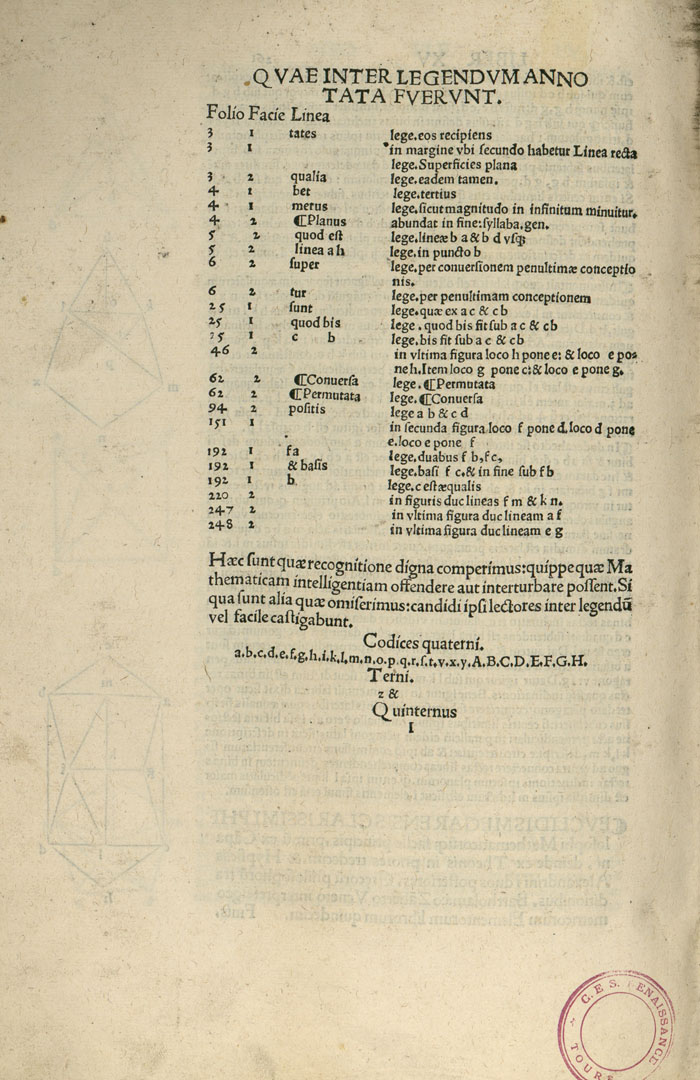 QVAE INTER LEGENDVM ANNO
TATA FVERVNT.
Folio Facie Linea
3 1 tates lege.eos recipiens
3 1 in margine vbi ſecundo habetur Linea recta
lege.Superficies plana
3 2 qualia lege.eadem tamen.
4 1 bet lege.tertius
4 1 merus lege.ſicut magnitudo in infinitum minuitur.
4 2 ¶Planus abundat in fine:ſyllaba.gen.
5 2 quod eſt lege.lineæ b a & b d vſq;
5 2 linea a h lege.in puncto b
6 2 ſuper lege.per conuerſionem penultimæ conceptio
nis.
6 2 tur lege.per penultimam conceptionem
25 1 ſunt lege.quæ ex a c & c b
25 1 quod bis lege.quod bis fit ſub a c & c b
25 1 c b lege.bis fit ſub a c & c b
46 2 in vltima figura loco h pone e: & loco e po-
ne h.Item loco g pone c:& loco e pone g.
62 2 ¶Conuerſa lege.¶Permutata
62 2 ¶Permutata lege.¶Conuerſa
94 2 poſitis lege a b & c d
151 1 in ſecunda figura loco f pone d.loco d pone
e.loco e pone f
192 1 fa lege.duabus f b,f c,
192 1 & baſis lege.baſi f c.& in fine ſub f b
192 1 b lege.c eſt æqualis
220 2 in figuris duc lineas f m & k n.
247 2 in vltima figura duc lineam a f
248 2 in vltima figura duc lineam e g
Hæc ſunt quæ recognitione digna comperimus:quippe quæ Ma
thematicam intelligentiam offendere aut interturbare poſſent.Si
qua ſunt alia quæ omiſerimus:candidi ipſi lectores inter legendū
vel facile caſtigabunt.
Codices quaterni.
a.b.c.d.e.f.g.h.i.k.l.m.n.o.p.q.r.ſ.t.v.x.y.A.B.C.D.E.F.G.H.
Terni.
z &
Quinternus
I
C.E.S. RENAISSANCE
TOURS